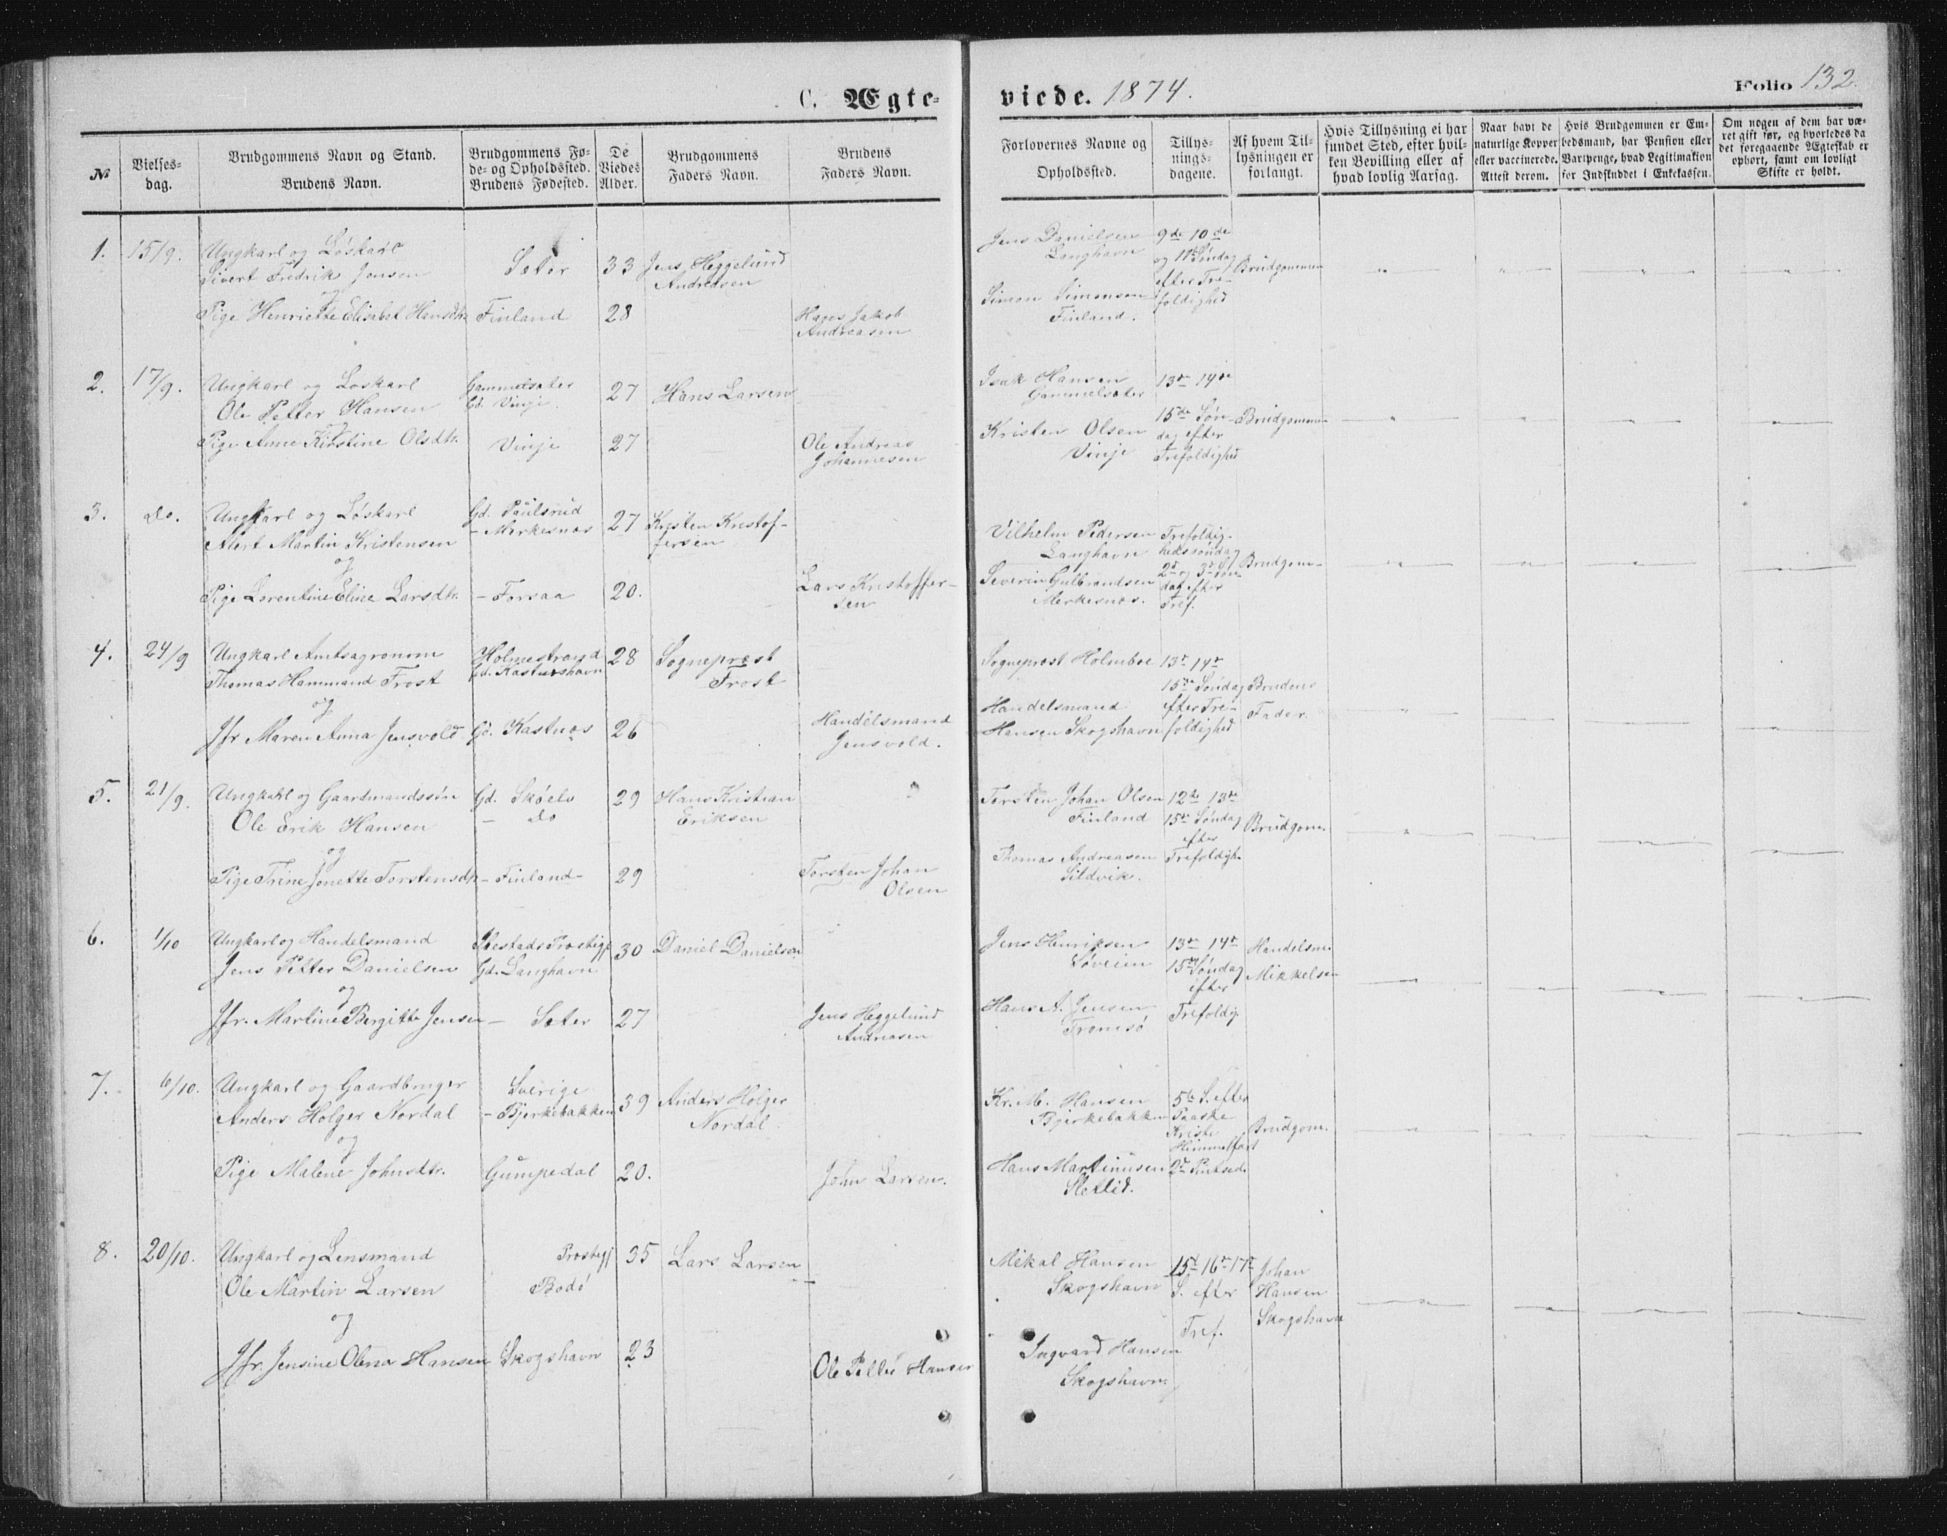 C. Ægteviede. 1874. Folio 132.
№
Vielsesdag.
Brudgommens Navn og Stand.
Brudens Navn.
Brudgommens Føde- og Opholdssted.
Brudens Fødested.
De Viedes Alder.
Brudgommens Faders Navn.
Brudens Faders Navn.
Forlovernes Navne og Opholdssted.
Tillysningsdagene.
Af hvem Tillysningen er forlangt.
Hvis Tillysning ei har fundet Sted, efter hvilken Bevilling eller af hvad lovlig Aarsag.
Naar havt de naturlige Kopper eller vaccinerede. Attest derom.
Hvis Brudgommen er Embedsmand, har Pension eller Vartpenge, hvad Legitimation for Indskuddet i Enkekassen.
Om nogen af dem har været gift før, og hvorledes da det foregaaende Ægteskab er ophørt, samt om lovligt Skifte er holdt.
1. 15/9. Ungkarl og Løskarl Sæter 33 Jens Heggelund
Sivert Fredrik Jensen Andreasen
og
Pige Henriette Elisabet Hansdtr. Finland 28 Hans Jakob
Andreasen
Jens Danielsen 9de 10de
Langhavn og 11te Søndag Brudgommen
Simon Simonsen efter Tre-
Finland. foldighed
2. 17/9. Ungkarl og Løskarl Gammelsæter 27 Hans Larsen
Ole Petter Hansen Gd. Vinje
og
Pige Anne Kirstine Olsdtr. Vinje 27 Ole Andreas
Johannesen
Isak Hansen 13de 14de
Gammelsæter 15de Søn- Brudgommen
Kristen Olsen dag efter
Vinje Trefoldighed
3. do. Ungkarl og Løskarl Gd. Paulsrud 27 Kristen Kristof-
Martin Kristensen - Merkesnæs fersen
og
Pige Lorentine Eline Larsdtr. - Forsaa 20. Lars Kristoffer-
sen
Vilhelm Pedersen Trefoldig-
Langhavn hedssøndag
Severin Gulbrandsen 2d og 3d Søn- Brudgom-
Merkesnæs. dag efter
Tref.
4. 24/9 Ungkarl Amtsagronom Holmestrand 28 Sogneprest
Thomas Hammond Frost Gd. Kastneshavn Frost
og
Jfr. Maren Anna Jensvold Gd. Kastnes 26 Handelsmand
Jensvold.
Sogneprest Holmboe 13de 14de
15de Søndag Brudens
Handelsmand efter Tre- Fader.
Hansen Skogshavn foldighed
5. 21/9. Ungkarl og Gaardmandssøn Gd. Skøelv 29 Hans Kristian
Ole Erik Hansen - do Eriksen
og
Pige Trine Jonette Torstensdtr. - Finland- 29 Torsten Johan
Olsen
Torsten Johan Olsen 12te 13de
Finland 15de Søndag Brudgom.
efter
Thomas Andreasen Trefoldigh.
Sildvik.
6. 1/10 Ungkarl og Handelsmand Ibestads Prostigj 30 Daniel Danielsen
Jens Petter Danielsen Gd. Langhavn
og
Jfr. Martine Bergitte Jensen - Sæter 27 Jens Heggelund
Andreasen
Jens Henriksen 13de 14de Handelsm.
Søveien 15de Søndag Mikkelsen
efter
Hans A. Jensen Trefoldig.
Tromsø
7. 6/10. Ungkarl og Gaardbruger Sverige 39 Anders Holger
Anders Holger Nordal - Bjerkebakken Nordal
og
Pige Malene Johnsdtr. Gumpedal 20. John Larsen.
Kr. M. Hansen 5te S. efter
Bjerkebakken Paaske
Kristi Brudgom.
Himmelfart
Hans Martinusen 2d Pintsed.
Slettlid.
8. 20/10. Ungkarl og Lensmand Prostegj 35 Lars Larsen
Ole Martin Larsen Bodø
og
Jfr. Jensine Olena Hansen Skogshavn 23 Ole Petter Hansen
Mikal Hansen 15de 16de 17de Johan
Skogshavn S. efter Hansen
Tref. Skogshavn
Ingvard Hansen
Skogshavn.